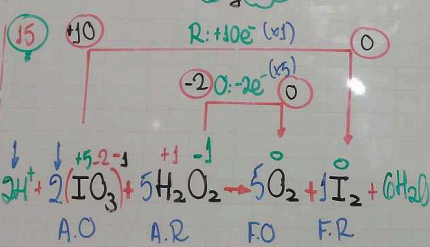 15 +10 R:+10e⁻ (x1) 0
-2 O:-2e⁻ (x5) 0
+5 -2 -1 +1 -1 0 0
2H⁺ + 2(IO₃) + 5H₂O₂ → 5O₂ + 1I₂ + 6H₂O
A.O A.R F.O F.R